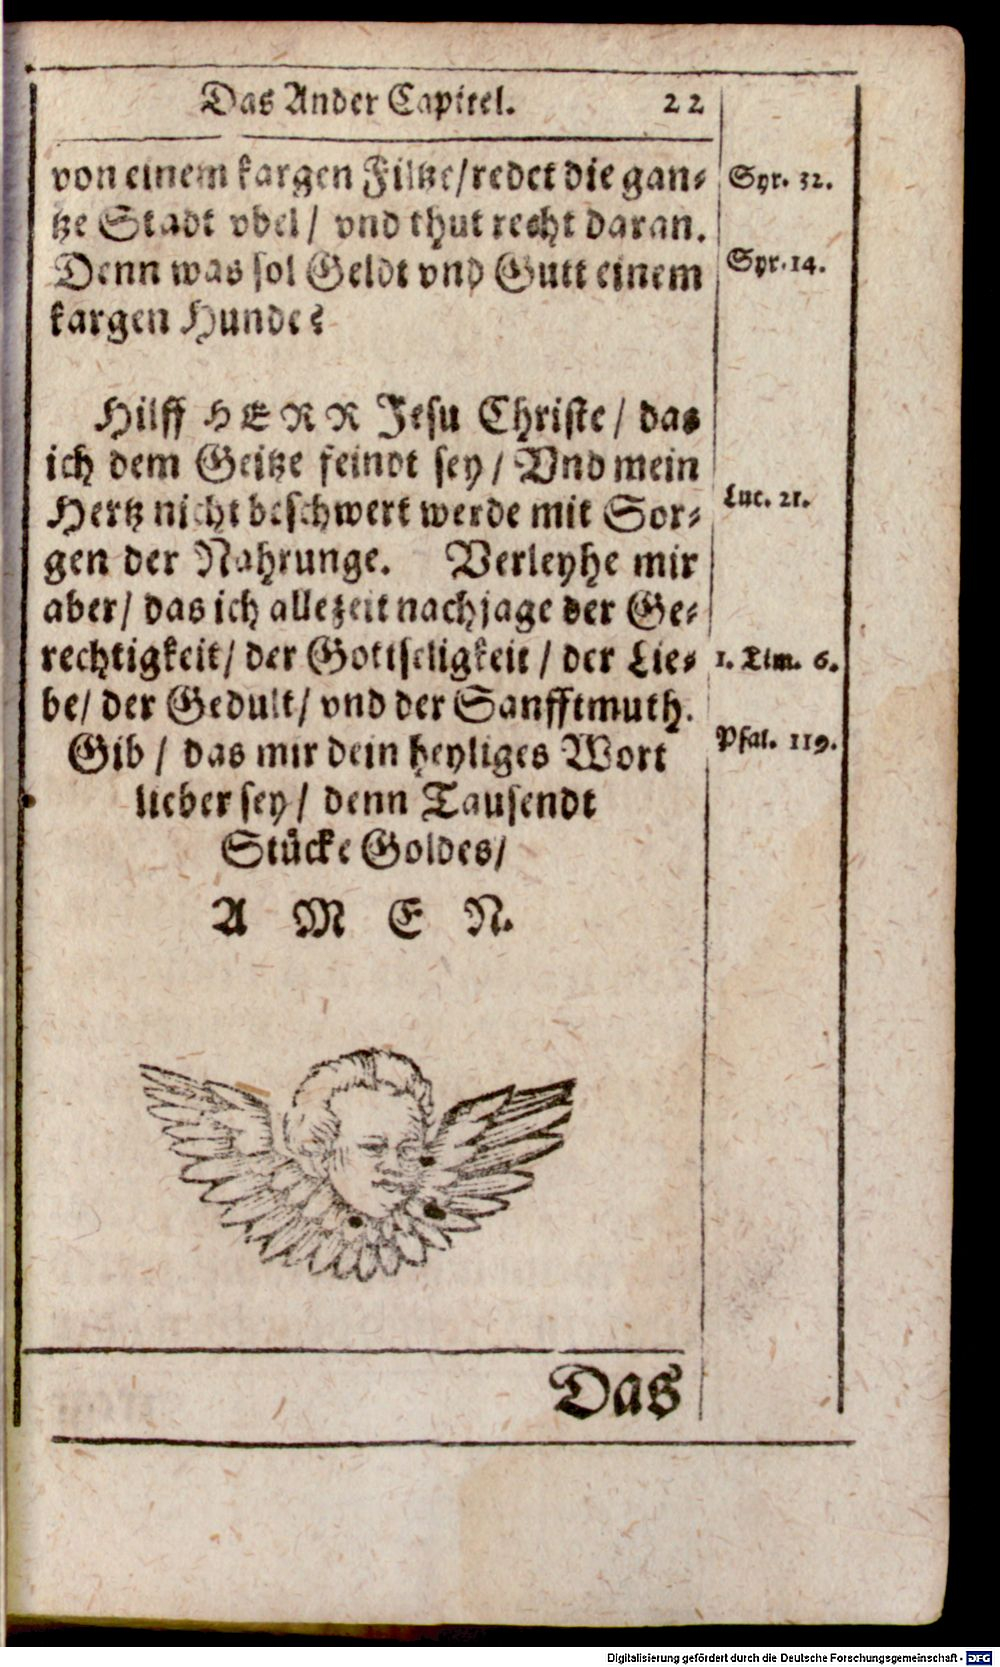 Das Ander Capitel. 22
von einem kargen Filtze/ redet die gan⸗
tze Stadt vbel/ vnd thut recht daran.
Denn was sol Geldt vnd Gutt einem
kargen Hunde?
Syr. 32.
Syr. 14.
Hilff HERR Jesu Christe/ das
ich dem Geitze feindt sey/ Vnd mein
Hertz nicht beschwert werde mit Sor⸗
gen der Nahrunge. Verleyhe mir
aber/ das ich allezeit nachjage der Ge⸗
rechtigkeit/ der Gottseligkeit/ der Lie⸗
be/ der Gedult/ vnd der Sanfftmuth.
Gib/ das mir dein heyliges Wort
lieber sey/ denn Tausendt
Stücke Goldes/
A M E N.
Luc. 21.
1. Tim. 6.
Psal. 119.
Das
Digitalisierung gefördert durch die Deutsche Forschungsgemeinschaft - DFG